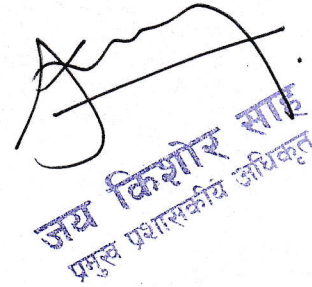 जय किशोर साह
प्रमुख प्रशासकीय अधिकृत